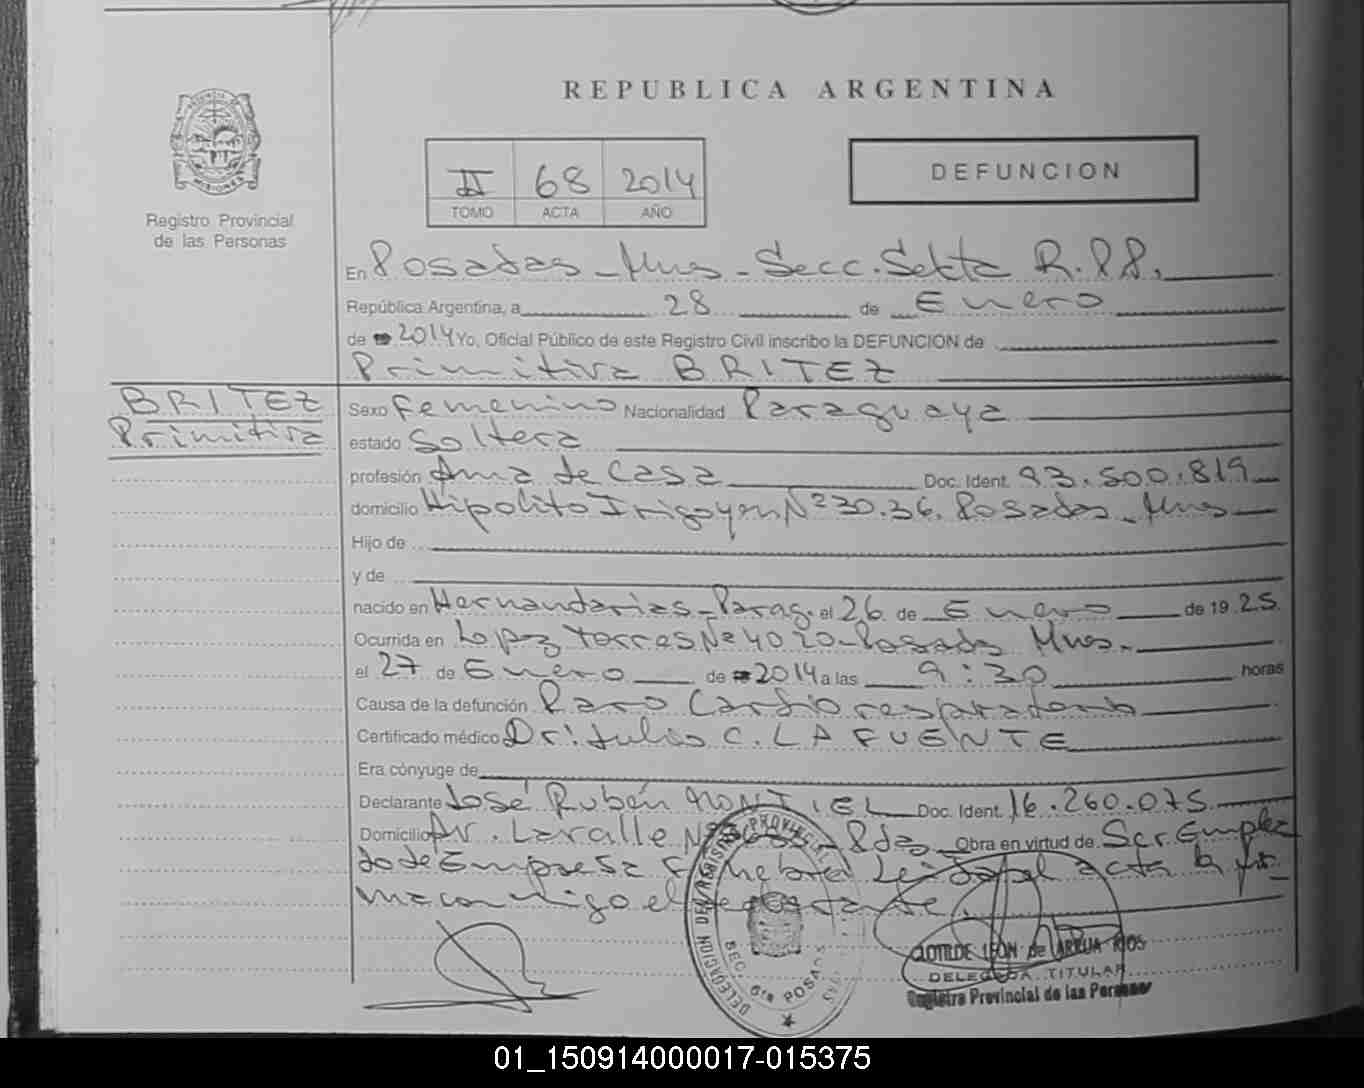 REPUBLICA ARGENTINA
MISIONES
Registro Provincial
de las Personas
II 68 2014
TOMO ACTA AÑO
DEFUNCION
En Posadas - Mnes - Secc. Sexta R.P.P.
República Argentina, a 28 de Enero
de 2014 Yo, Oficial Público de este Registro Civil inscribo la DEFUNCION de
Primitiva BRITEZ
BRITEZ
Primitiva
Sexo Femenino Nacionalidad Paraguaya
estado Soltera
profesión Ama de Casa Doc. Ident. 93.500.819
domicilio Hipolito Irigoyen Nº 30.36. Posadas - Mnes
Hijo de
y de
nacido en Hernandarias - Parag. el 26 de Enero de 19 25.
Ocurrida en Lopez Torres Nº 4020 - Posadas Mnes.
el 27 de Enero de 2014 a las 9:30 horas
Causa de la defunción Paro Cardiorespiratorio
Certificado médico Dr. Julio C. LAFUENTE
Era cónyuge de
Declarante José Rubén MONTIEL Doc. Ident. 16.260.075
Domicilio Av. Lavalle Nº - Pdas Obra en virtud de Ser Emplea
do de Empresa Funebre. Leida el acta la fir
ma conmigo el declarante.
DELEGACION DEL REGISTRO PROVINCIAL DE LAS PERSONAS
SEC. 6ta POSADAS
CLOTILDE LEON de ARRUA RIOS
DELEGADA TITULAR
Registro Provincial de las Personas
01_150914000017-015375